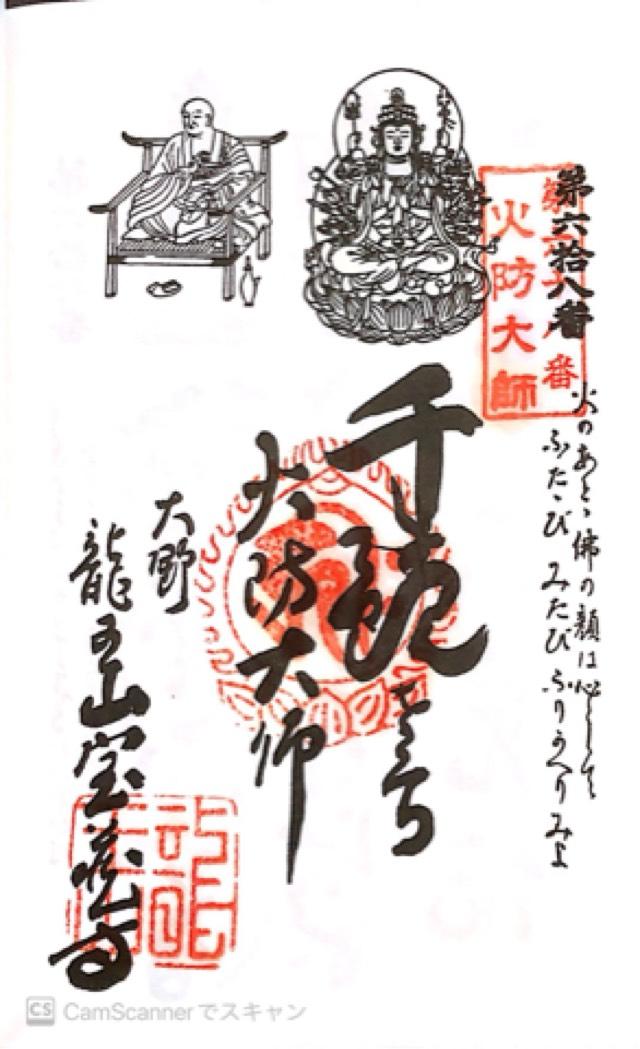 第六拾八番
火防大師
番
火のあとゝ佛の顔は心して
ふたゝびみたびふりかへりみよ
千観
火防大師
大野
龍王山宝蔵寺
CS CamScannerでスキャン